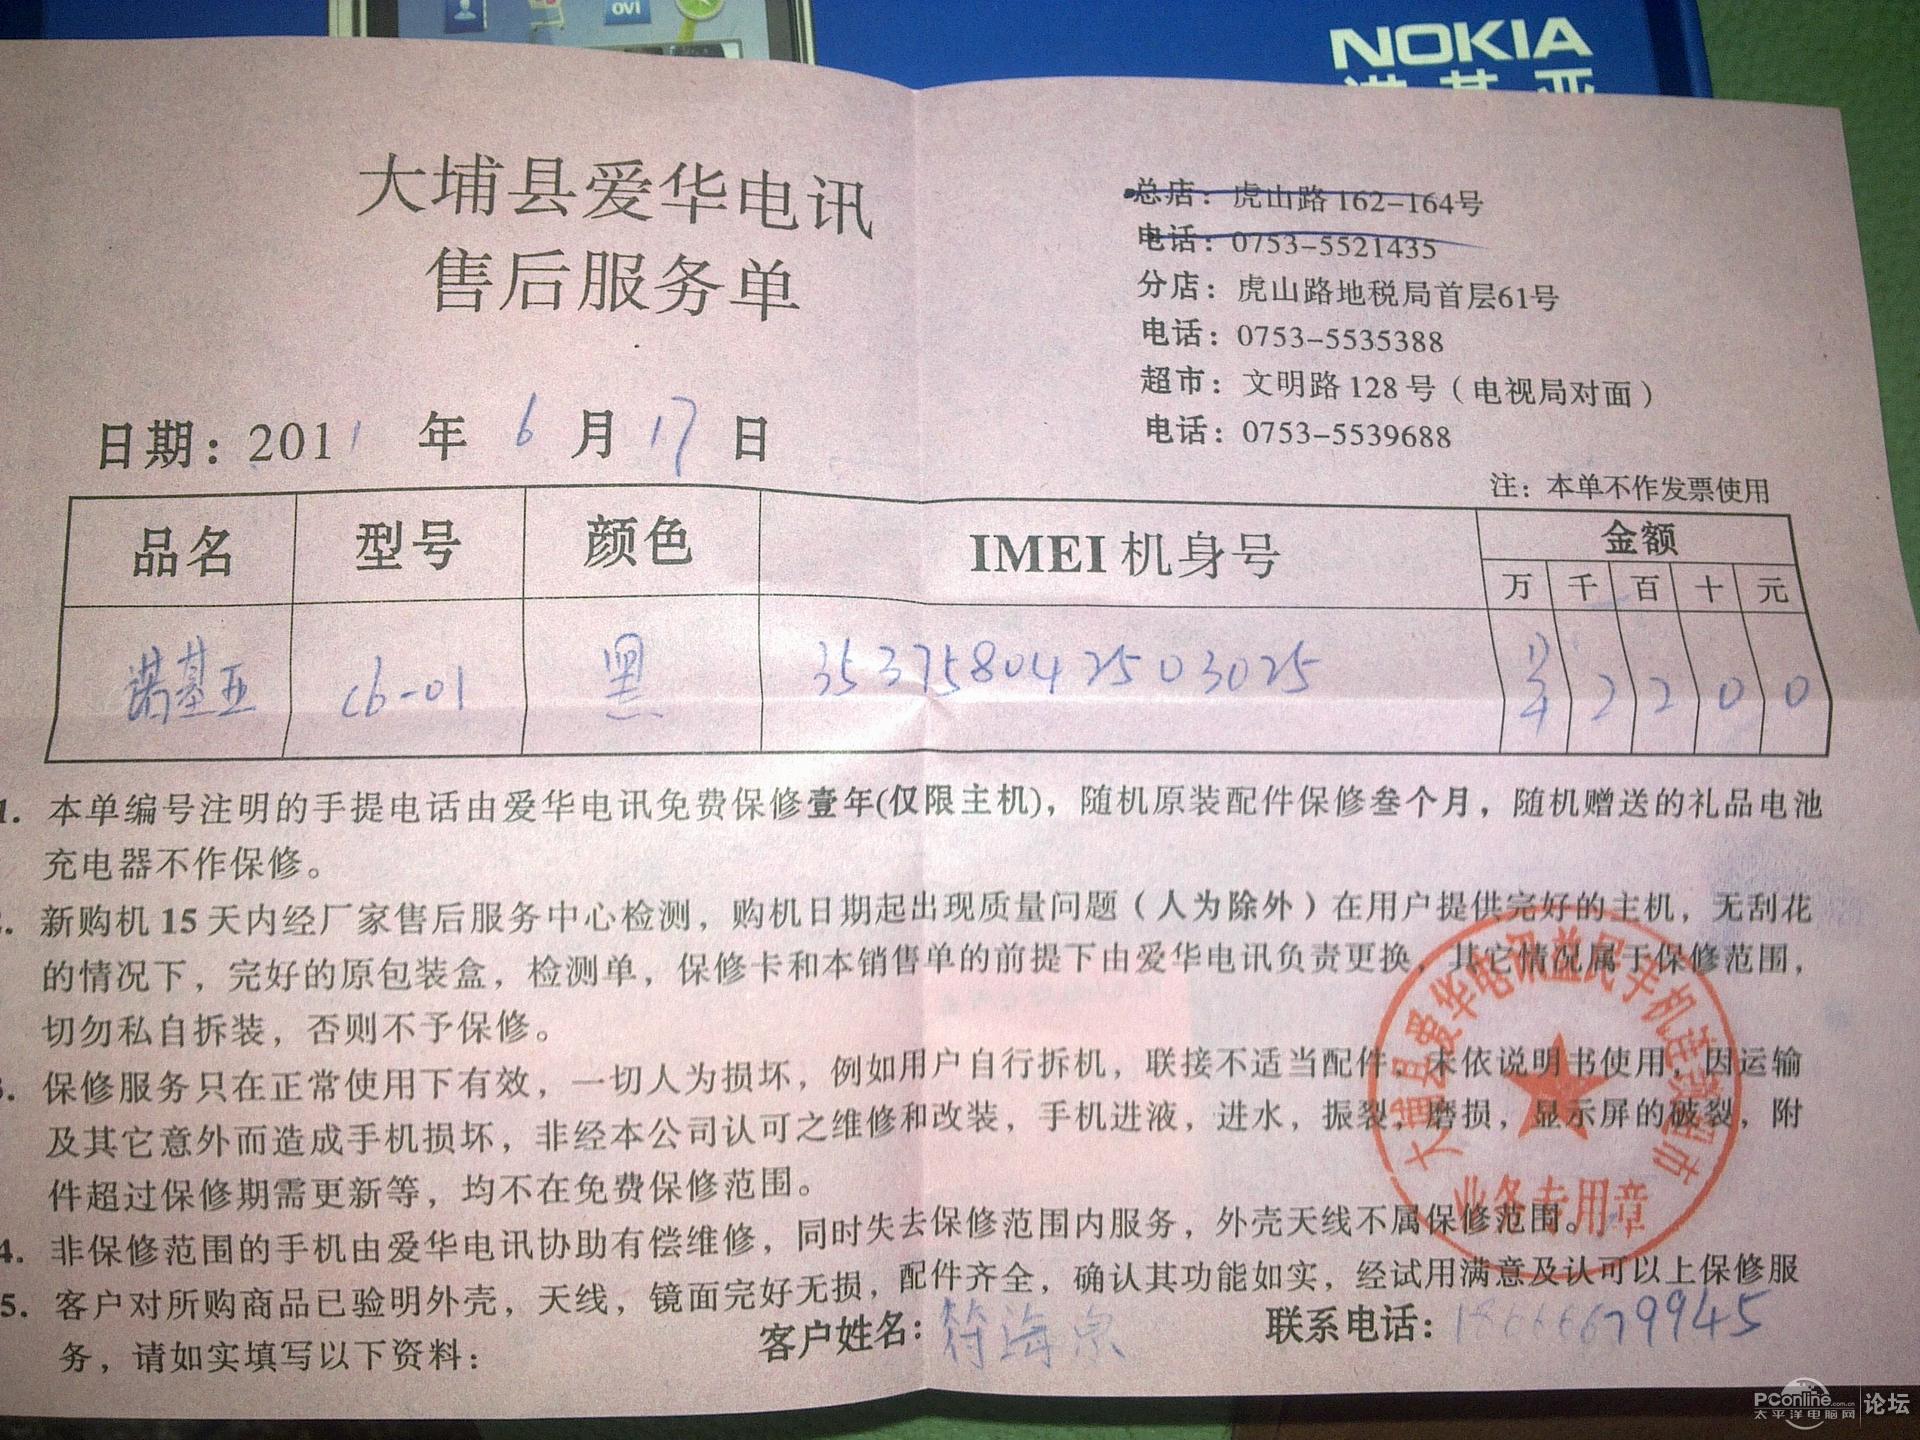 ovi
NOKIA
诺基亚
大埔县爱华电讯
售后服务单
总店：虎山路 162-164号
电话：0753-5521435
分店：虎山路地税局首层61号
电话：0753-5535388
超市：文明路 128 号（电视局对面）
电话：0753-5539688
日期：2011 年 6 月 17 日
注：本单不作发票使用
品名 型号 颜色 IMEI 机身号 金额
万 千 百 十 元
诺基亚 c6-01 黑 353758042503025 2 2 0 0
1. 本单编号注明的手提电话由爱华电讯免费保修壹年(仅限主机)，随机原装配件保修叁个月，随机赠送的礼品电池
充电器不作保修。
2. 新购机 15 天内经厂家售后服务中心检测，购机日期起出现质量问题（人为除外）在用户提供完好的主机，无刮花
的情况下，完好的原包装盒，检测单，保修卡和本销售单的前提下由爱华电讯负责更换，其它情况属于保修范围，
切勿私自拆装，否则不予保修。
3. 保修服务只在正常使用下有效，一切人为损坏，例如用户自行拆机，联接不适当配件，未依说明书使用，因运输
及其它意外而造成手机损坏，非经本公司认可之维修和改装，手机进液，进水，振裂，磨损，显示屏的破裂，附
件超过保修期需更新等，均不在免费保修范围。
4. 非保修范围的手机由爱华电讯协助有偿维修，同时失去保修范围内服务，外壳天线不属保修范围。
5. 客户对所购商品已验明外壳，天线，镜面完好无损，配件齐全，确认其功能如实，经试用满意及认可以上保修服
务，请如实填写以下资料：
客户姓名：符海 联系电话：18666679945
业务专用章
PConline.com.cn
太平洋电脑网
论坛